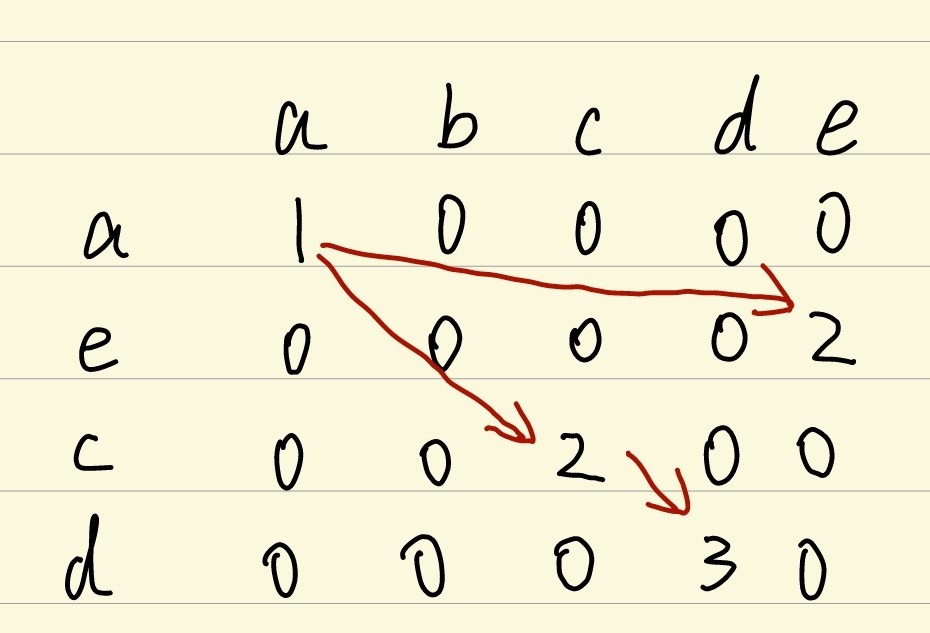 a b c d e
a 1 0 0 0 0
e 0 0 0 0 2
c 0 0 2 0 0
d 0 0 0 3 0